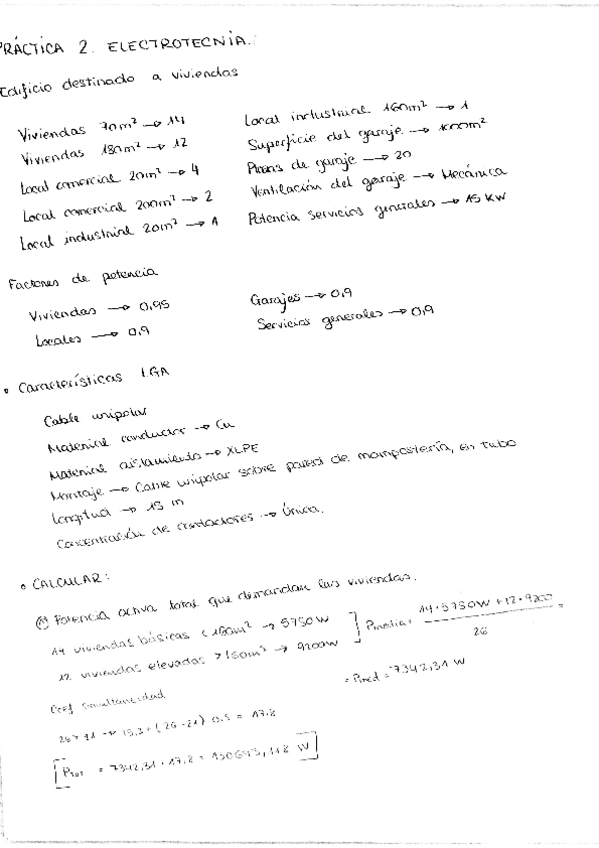 PRÁCTICA 2. ELECTROTECNIA.
Edificio destinado a viviendas
Viviendas 70m² → 14
Viviendas 180m² → 12
Local comercial 20m² → 4
Local comercial 200m² → 2
Local industrial 20m² → 1
Local industrial 160m² → 1
Superficie del garaje → 1000m²
Plazas de garaje → 20
Ventilación del garaje → Mecánica
Potencia servicios generales → 15 KW
Factores de potencia
Viviendas → 0,95
Locales → 0,9
Garajes → 0,9
Servicios generales → 0,9
• Características LGA
Cable unipolar
Material conductor → Cu
Material aislamiento → XLPE
Montaje → Cable unipolar sobre pared de mampostería, en tubo
Longitud → 15 m
Concentración de contadores → Única.
• CALCULAR:
Potencia activa total que demandan las viviendas.
14 viviendas básicas < 160m² → 5750 W
12 viviendas elevadas > 160m² → 9200W
Pmedia = 14·5750W + 12·9200 / 26 =
= Pmed = 7342,31 W
Coef simultaneidad
26 > 21 → 15,3 + (26-21) 0.5 = 17.8